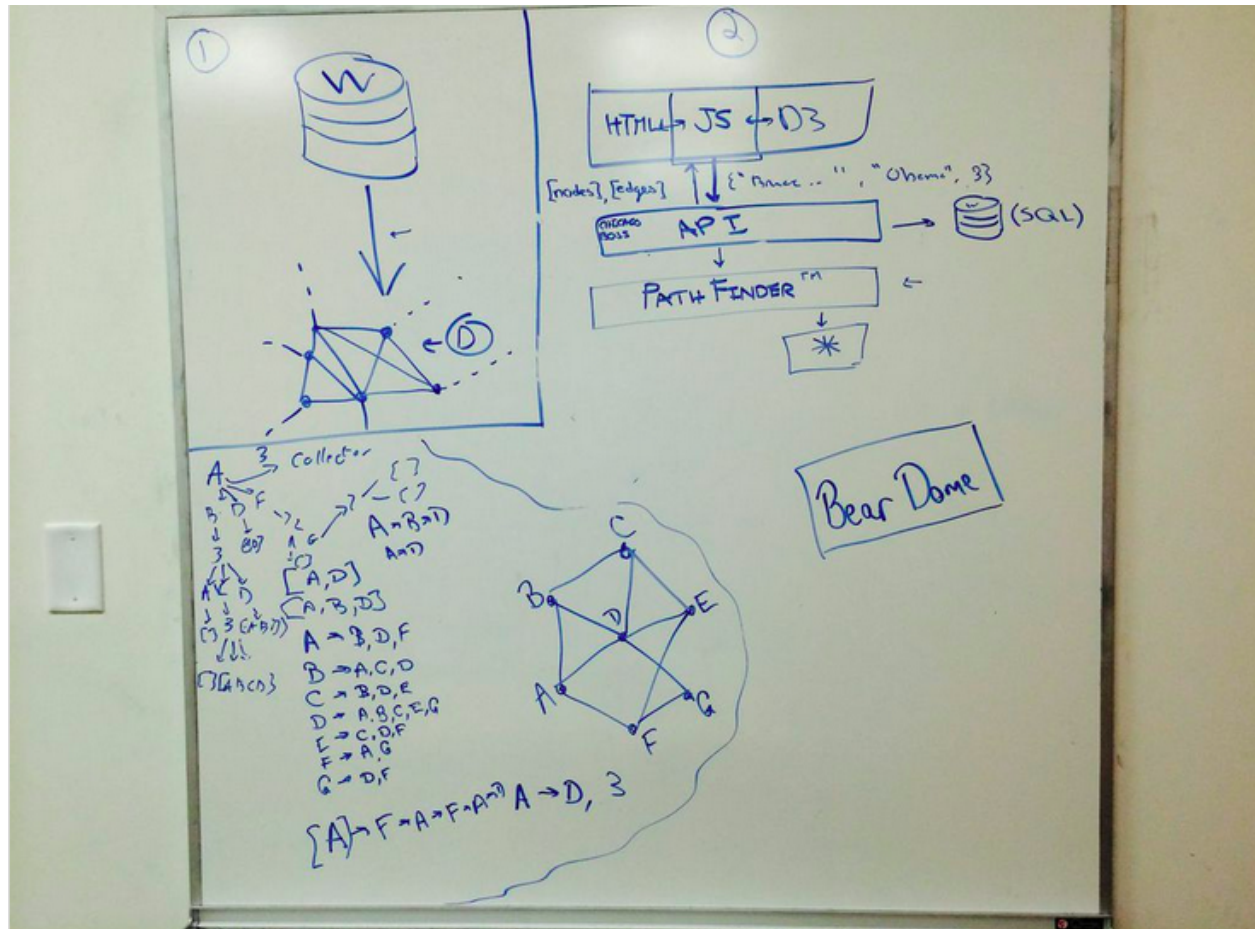 1
W
D
2
HTML ↔ JS ↔ D3
[nodes], [edges]
", "Obama", 3}
CHICAGO BOSS
API
W
(SQL)
PATH FINDER™
*
Bear Dome
3
A → Collector
B D F
3
A D
{ } 3 {ABD}
{ } {ABCD}
{ }
{ }
A → B → D
A → D
[A, D]
[A, B, D]
A → B, D, F
B → A, C, D
C → B, D, E
D → A, B, C, E, G
E → C, D, F
F → A, G
G → D, F
[A] → F → A → F → A → D A → D, 3
C
B
E
D
A
G
F